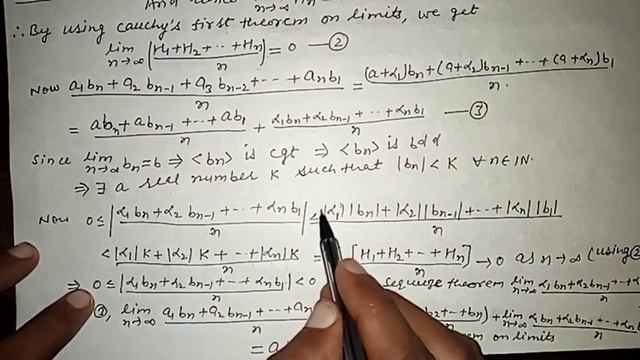 And hence lim n→∞
∴ By using cauchy's first theorem on limits, we get
lim n→∞ (H1+H2+ ··· +Hn)/n = 0 —②
Now (a1bn + a2 bn-1 + a3 bn-2 + ··· + anb1)/n = ((a+α1)bn + (a+α2)bn-1 + ··· + (a+αn)b1)/n.
= (abn + abn-1 + ··· + ab1)/n + (α1bn+α2bn-1 + ··· + αnb1)/n —③
Since lim n→∞ bn=b ⇒ <bn> is cgt ⇒ <bn> is bdd
⇒ ∃ a real number K such that |bn| < K ∀ n∈IN.
Now 0 ≤ |(α1bn+α2 bn-1 + ··· + αn b1)/n| ≤ (|α1||bn|+|α2||bn-1|+ ··· +|αn||b1|)/n
< (|α1|K+|α2|K + ··· +|αn|K)/n = [H1+H2+ ··· +Hn]/n → 0 as n→∞ (using ②
⇒ 0 ≤ |(α1bn+α2bn-1+ ··· +αnb1)/n| < 0 squeeze theorem lim n→∞ (α1bn+α2bn-1+ ···)/n
③, lim n→∞ (a1bn+a2bn-1+ ··· +an)/n + ··· +bn)/n + lim n→∞ (α1bn+α2bn-1+ ··· +αn)/n
= a theorem on limits